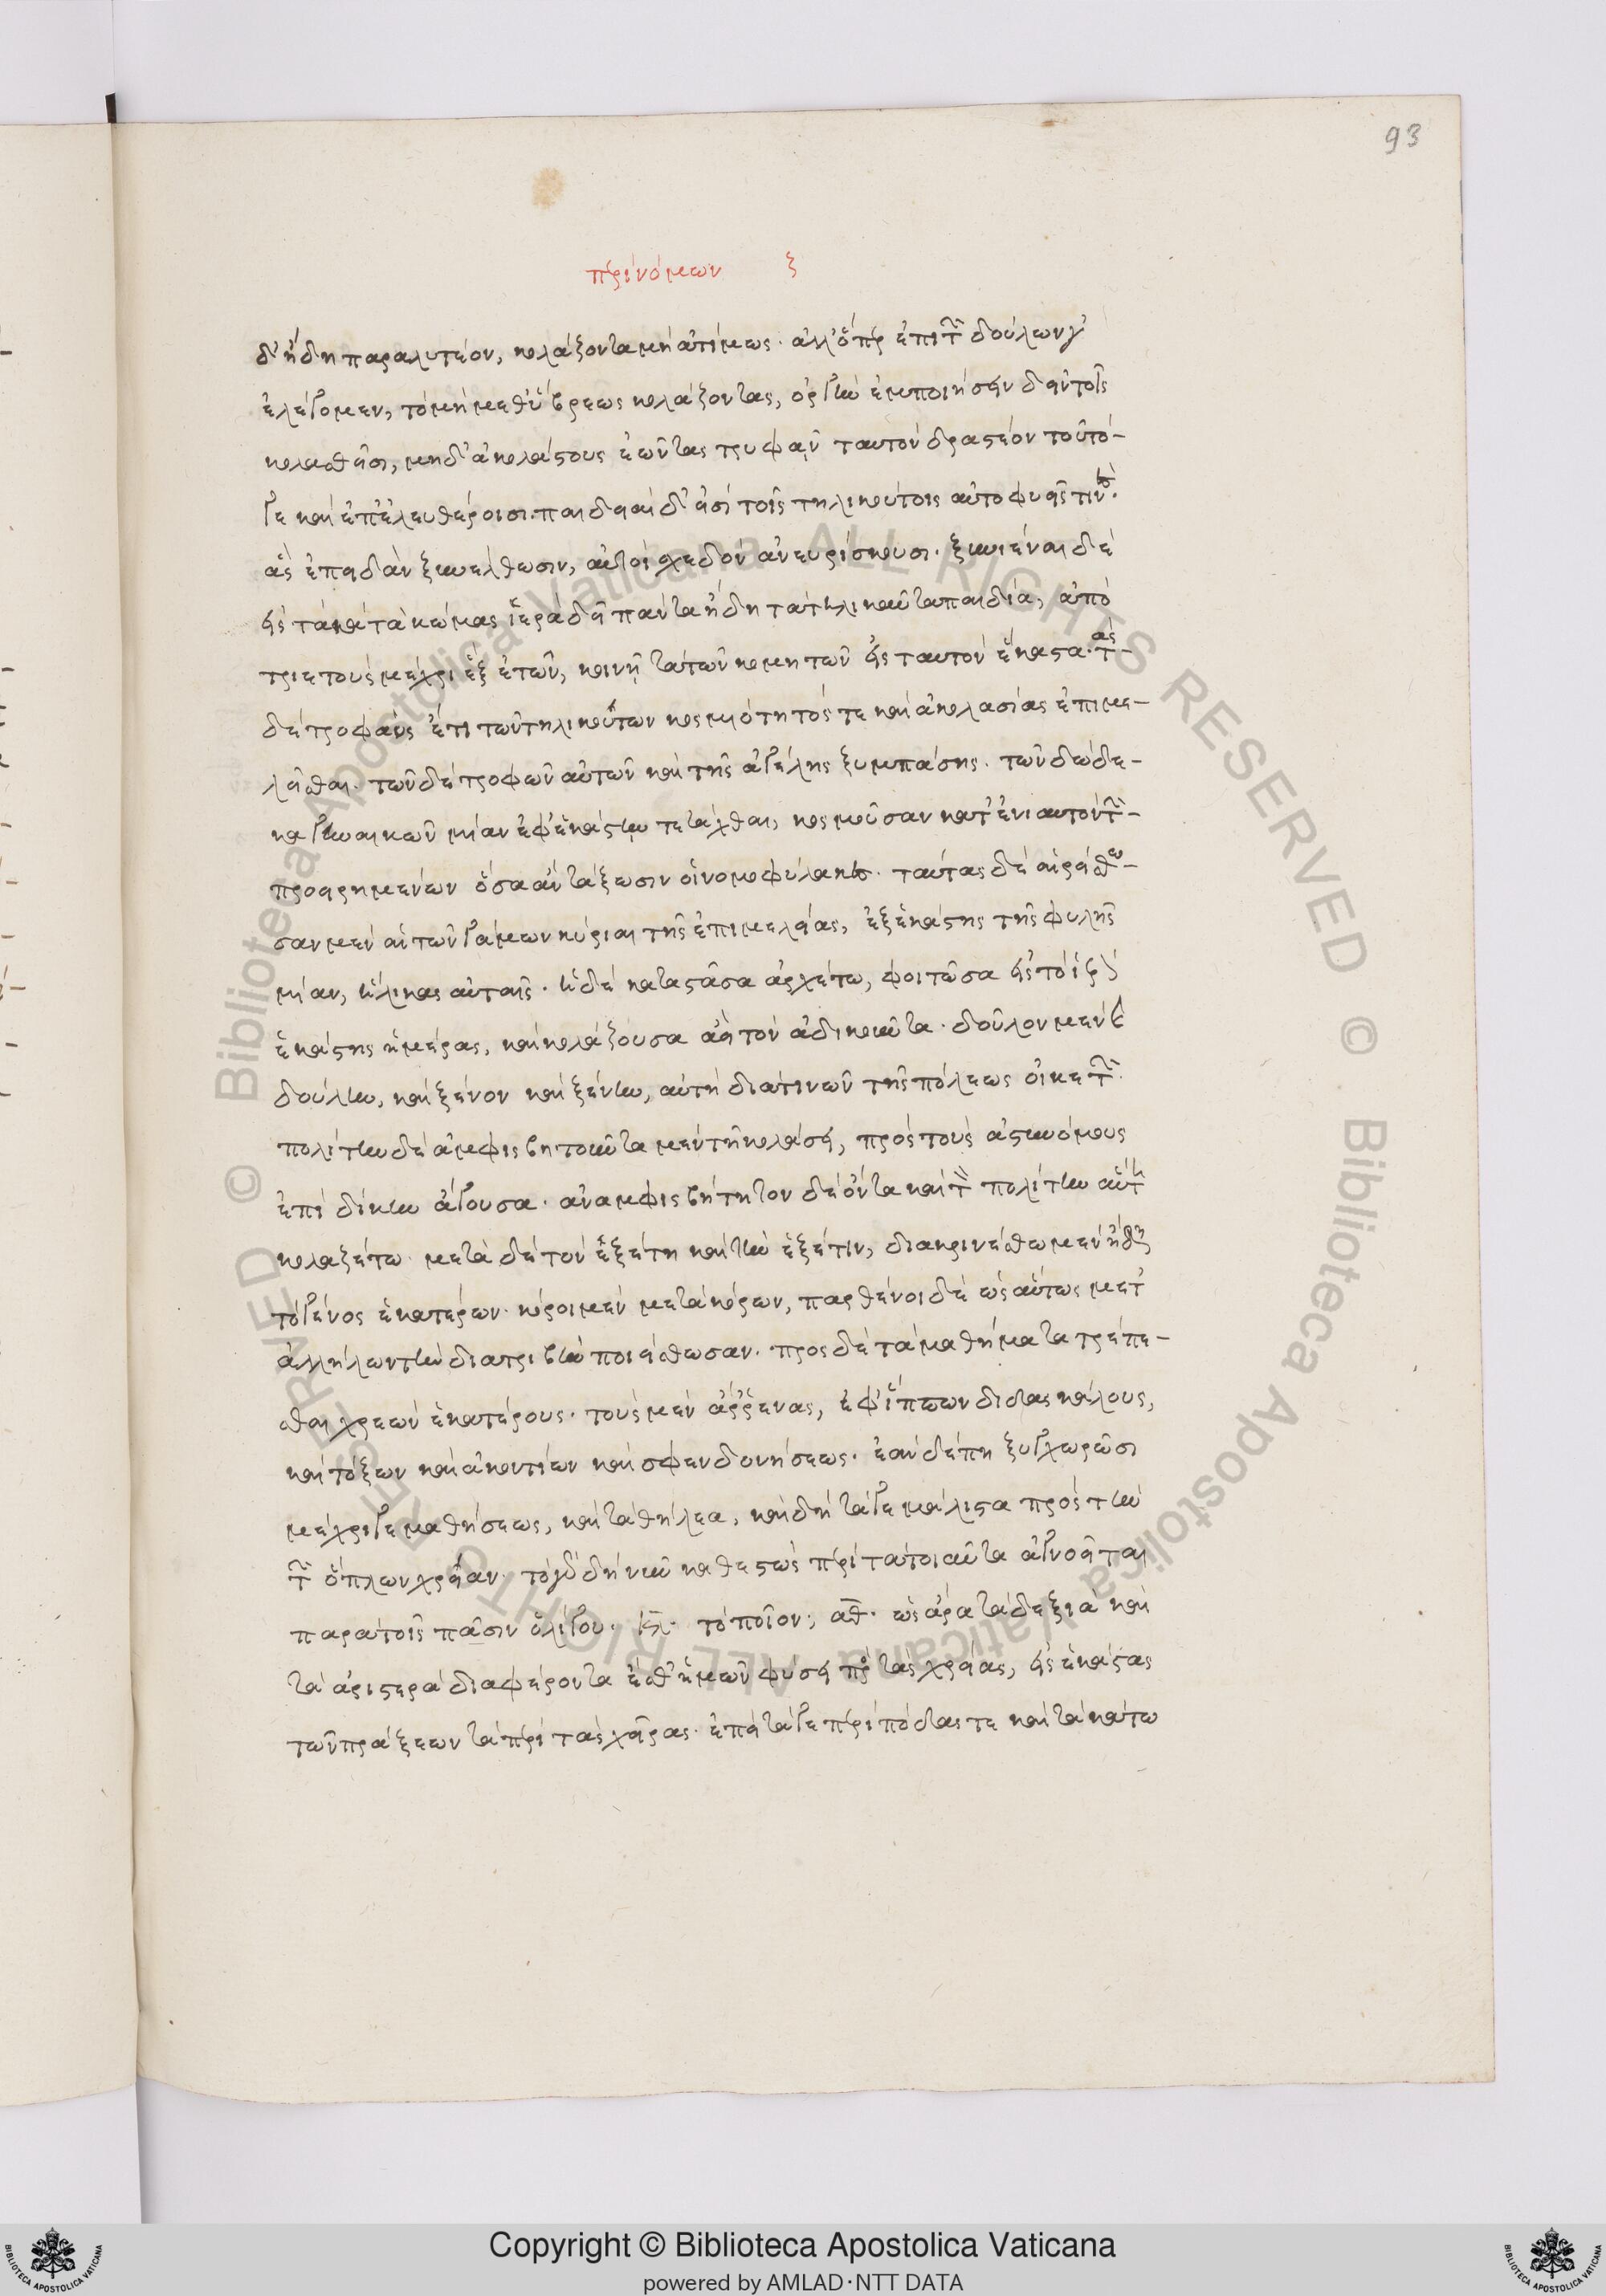 93
περὶ νόμων ζ
δ' ἤδη παραλυτέον, κολάζοντα μὴ ἀτίμως. ἀλλ' ὅπερ ἐπὶ τῶν δούλων γ'
ἐλέγομεν, τὸ μὴ μεθ' ὕβρεως κολάζοντας, ὀργὴν ἐμποιῆσαι δεῖν τοῖς
κολασθεῖσι, μηδ' ἀκολάστους ἐῶντας τρυφᾶν ταυτὸν δραστέον τοῦτό-
γε καὶ ἐπ' ἐλευθέροισι. παιδιαὶ δ' εἰσὶ τοῖς τηλικούτοις αὐτοφυεῖς τινὲς.
ἃς ἐπειδὰν ξυνέλθωσιν, αὐτοὶ σχεδὸν ἀνευρίσκουσι. ξυνιέναι δὲ
εἰς τὰ κατὰ κώμας ἱερὰ δεῖ πάντα ἤδη τὰ τηλικαῦτα παιδία, ἀπὸ
τριετοῦς μέχρι ἓξ ἐτῶν, κοινῇ τὰ τῶν κωμητῶν εἰς ταυτὸν ἕκαστα. τὰς
δὲ τροφοὺς ἔτι τῶν τηλικούτων κοσμιότητός τε καὶ ἀκολασίας ἐπιμε-
λεῖσθαι. τῶν δὲ τροφῶν αὐτῶν καὶ τῆς ἀγέλης ξυμπάσης. τῶν δώδε-
κα γυναικῶν μίαν ἐφ' ἑκάστῳ τετάχθαι, κοσμοῦσαν κατ' ἐνιαυτὸν τῶν
προειρημένων ὅσα ἂν τάξωσιν οἱ νομοφύλακες. ταύτας δὲ αἱρείσθω-
σαν μὲν αἱ τῶν γάμων κύριαι τῆς ἐπιμελείας, ἐξ ἑκάστης τῆς φυλῆς
μίαν, ἥλικας αὐταῖς. ἡ δὲ καταστᾶσα ἀρχέτω, φοιτῶσα εἰς τὸ ἱερὸν
ἑκάστης ἡμέρας, καὶ κολάζουσα ἀεὶ τὸν ἀδικοῦντα. δοῦλον μὲν καὶ
δούλην, καὶ ξένον καὶ ξένην, αὐτὴ διά τινων τῆς πόλεως οἰκετῶν.
πολίτην δὲ ἀμφισβητοῦντα μὲν τῇ κολάσει, πρὸς τοὺς ἀστυνόμους
ἐπὶ δίκην ἄγουσα. ἀναμφισβήτητον δὲ ὄντα καὶ τὸν πολίτην αὐτὴ
κολαζέτω. μετὰ δὲ τὸν ἑξέτη καὶ τὴν ἑξέτιν, διακρινέσθω μὲν ἤδη
τὸ γένος ἑκατέρων. κόροι μὲν μετὰ κόρων, παρθένοι δὲ ὡσαύτως μετ'
ἀλλήλων τὴν διατριβὴν ποιείσθωσαν. πρὸς δὲ τὰ μαθήματα τρέπε-
σθαι χρεὼν ἑκατέρους. τοὺς μὲν ἄρρενας, ἐφ' ἵππων διδασκάλους,
καὶ τόξων καὶ ἀκοντίων καὶ σφενδονήσεως. ἐὰν δέ πη ξυγχωρῶσι
μέχρι γε μαθήσεως, καὶ τὰ θήλεα, καὶ δὴ τά γε μάλιστα πρὸς τὴν
τῶν ὅπλων χρείαν. τὸ γὰρ δὴ νῦν καθεστὼς περὶ τὰ τοιαῦτα ἀγνοεῖται
παρὰ τοῖς πᾶσιν ὀλίγου. κλ. τὸ ποῖον; ἀθ. ὡς ἄρα τὰ δεξιὰ καὶ
τὰ ἀριστερὰ διαφέροντα ἔσθ' ἡμῶν φύσει πρὸς τὰς χρείας, εἰς ἑκάστας
τῶν πράξεων τὰ περὶ τὰς χεῖρας. ἐπεὶ τά γε περὶ πόδας τε καὶ τὰ κάτω
Copyright © Biblioteca Apostolica Vaticana
powered by AMLAD·NTT DATA